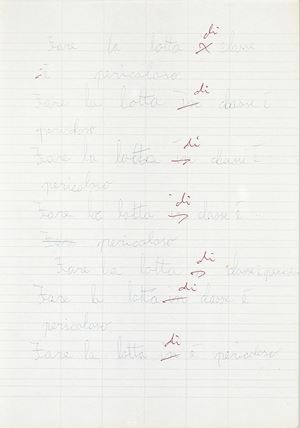 di
Fare la lotta x classe
è pericoloso
di
Fare la lotta in classe è
pericoloso
di
Fare la lotta in classe è
pericoloso
di
Fare la lotta in classe è
pericoloso
di
Fare la lotta classe è pericoloso
di
Fare la lotta in classe è
pericoloso
di
Fare la lotta in è pericoloso